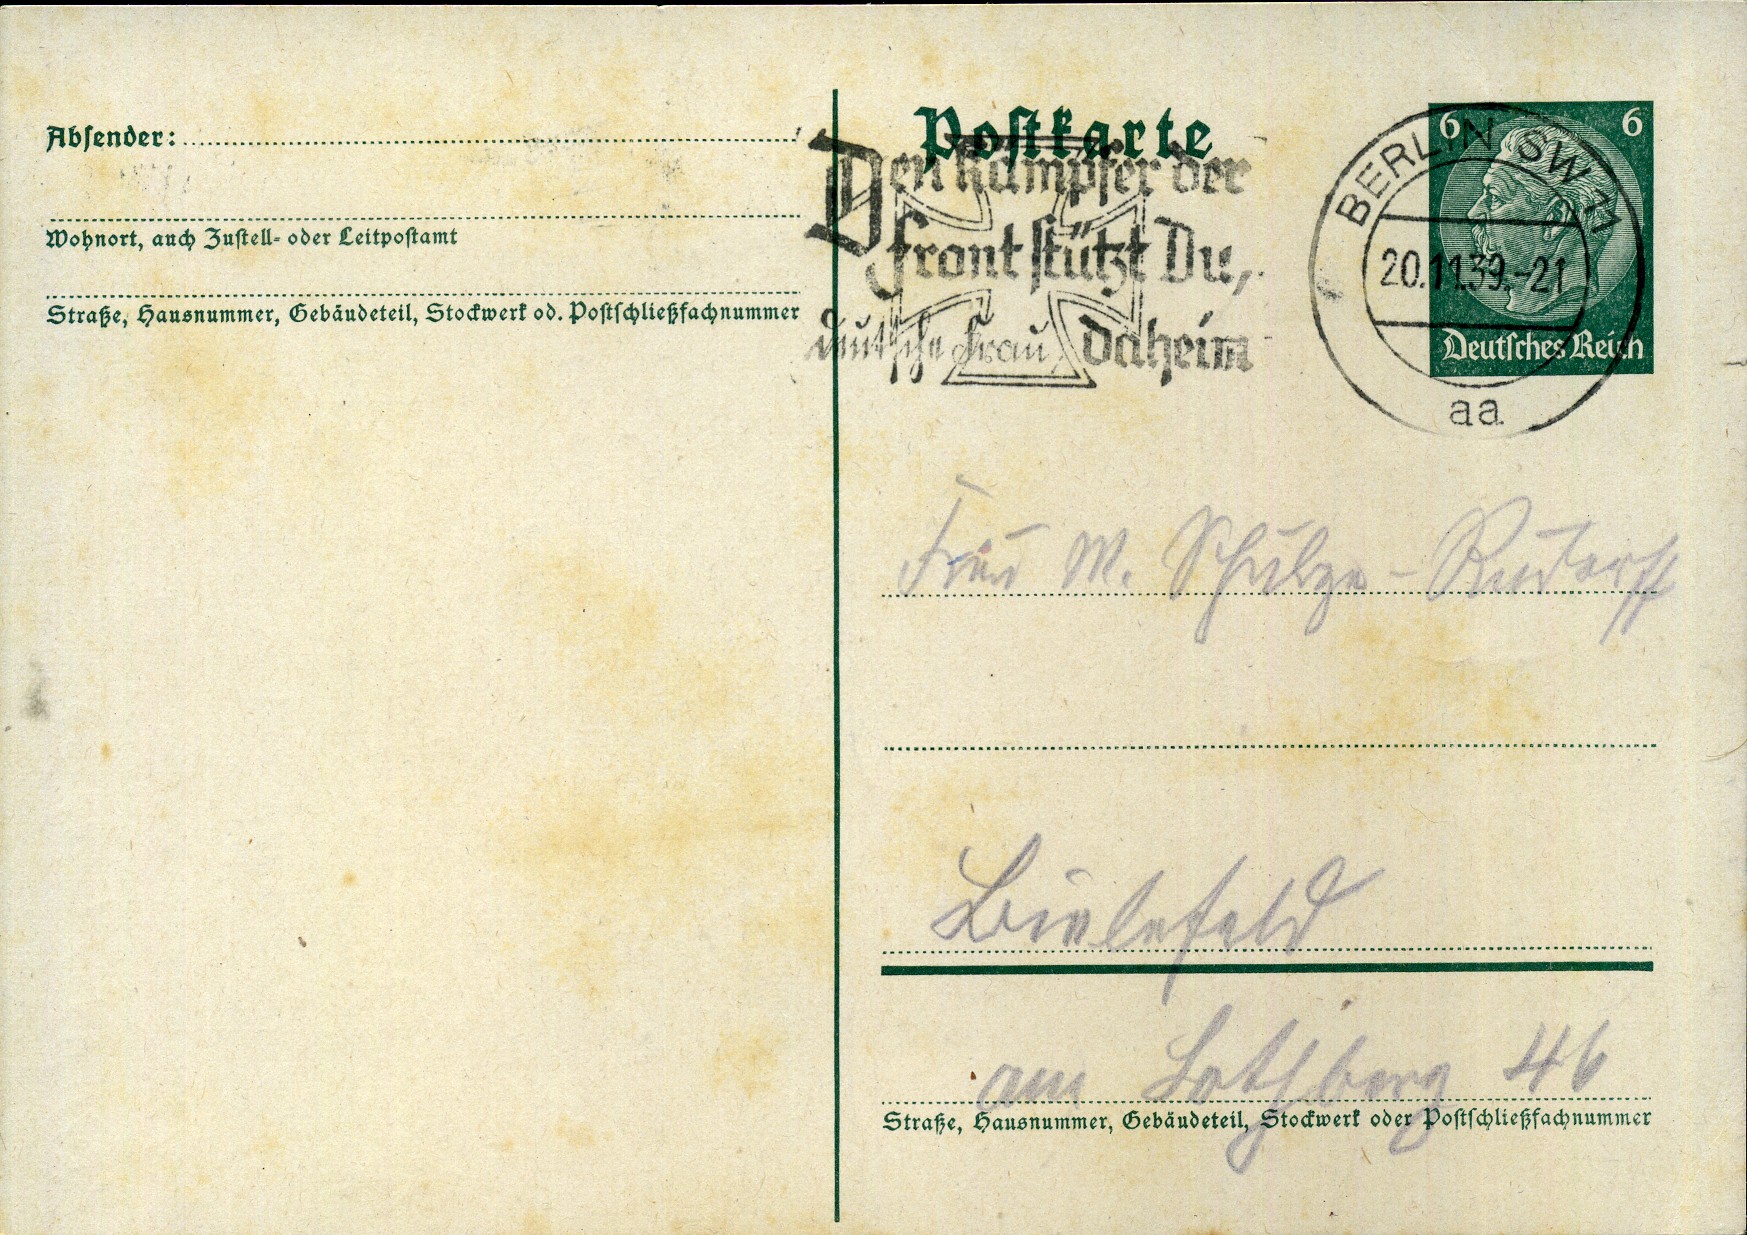 Absender:
Wohnort, auch Zustell- oder Leitpostamt
Straße, Hausnummer, Gebäudeteil, Stockwerk od. Postschließfachnummer
Postkarte
Den Kämpfer der
Front stützt Du,
deutsche Frau, daheim
BERLIN SW 11
20.11.39.-21
aa
6 6
Deutsches Reich
Frau M. Schulze-Rudorff
Bielefeld
am 46
Straße, Hausnummer, Gebäudeteil, Stockwerk oder Postschließfachnummer